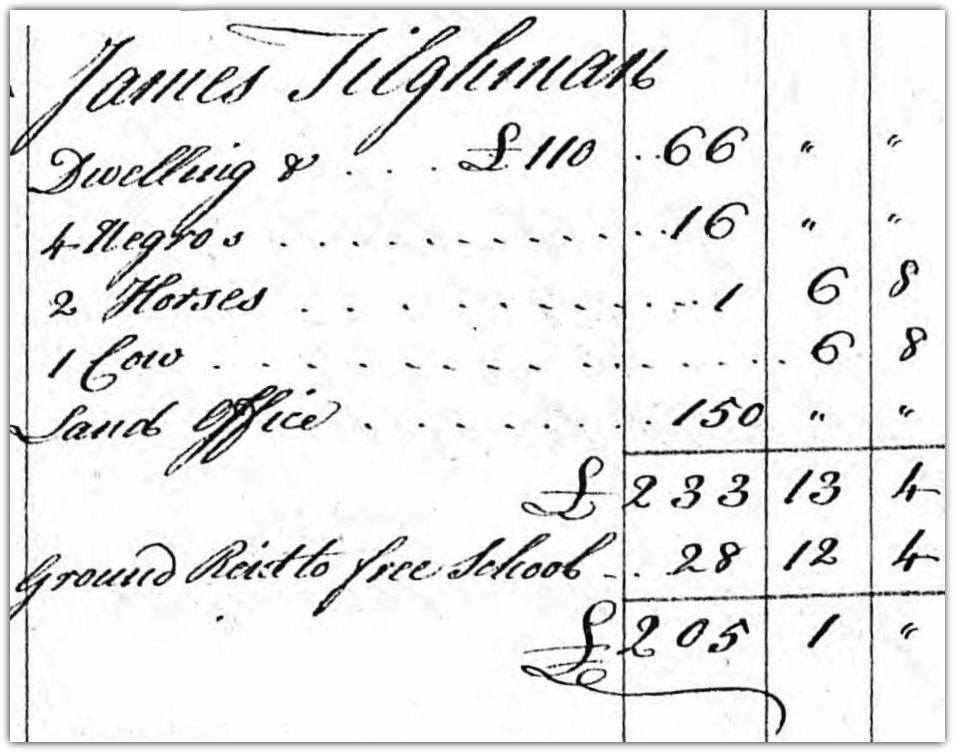 James Tilghman
Dwelling & . . . £110 . . 66 " "
4 Negros . . . . . . . . . . . . 16 " "
2 Horses . . . . . . . . . . . 1 6 8
1 Cow . . . . . . . . . . . . . . 6 8
Land Office . . . . . . . . 150 " "
£ 233 13 4
Ground Rent to free School . . 28 12 4
£ 205 1 "